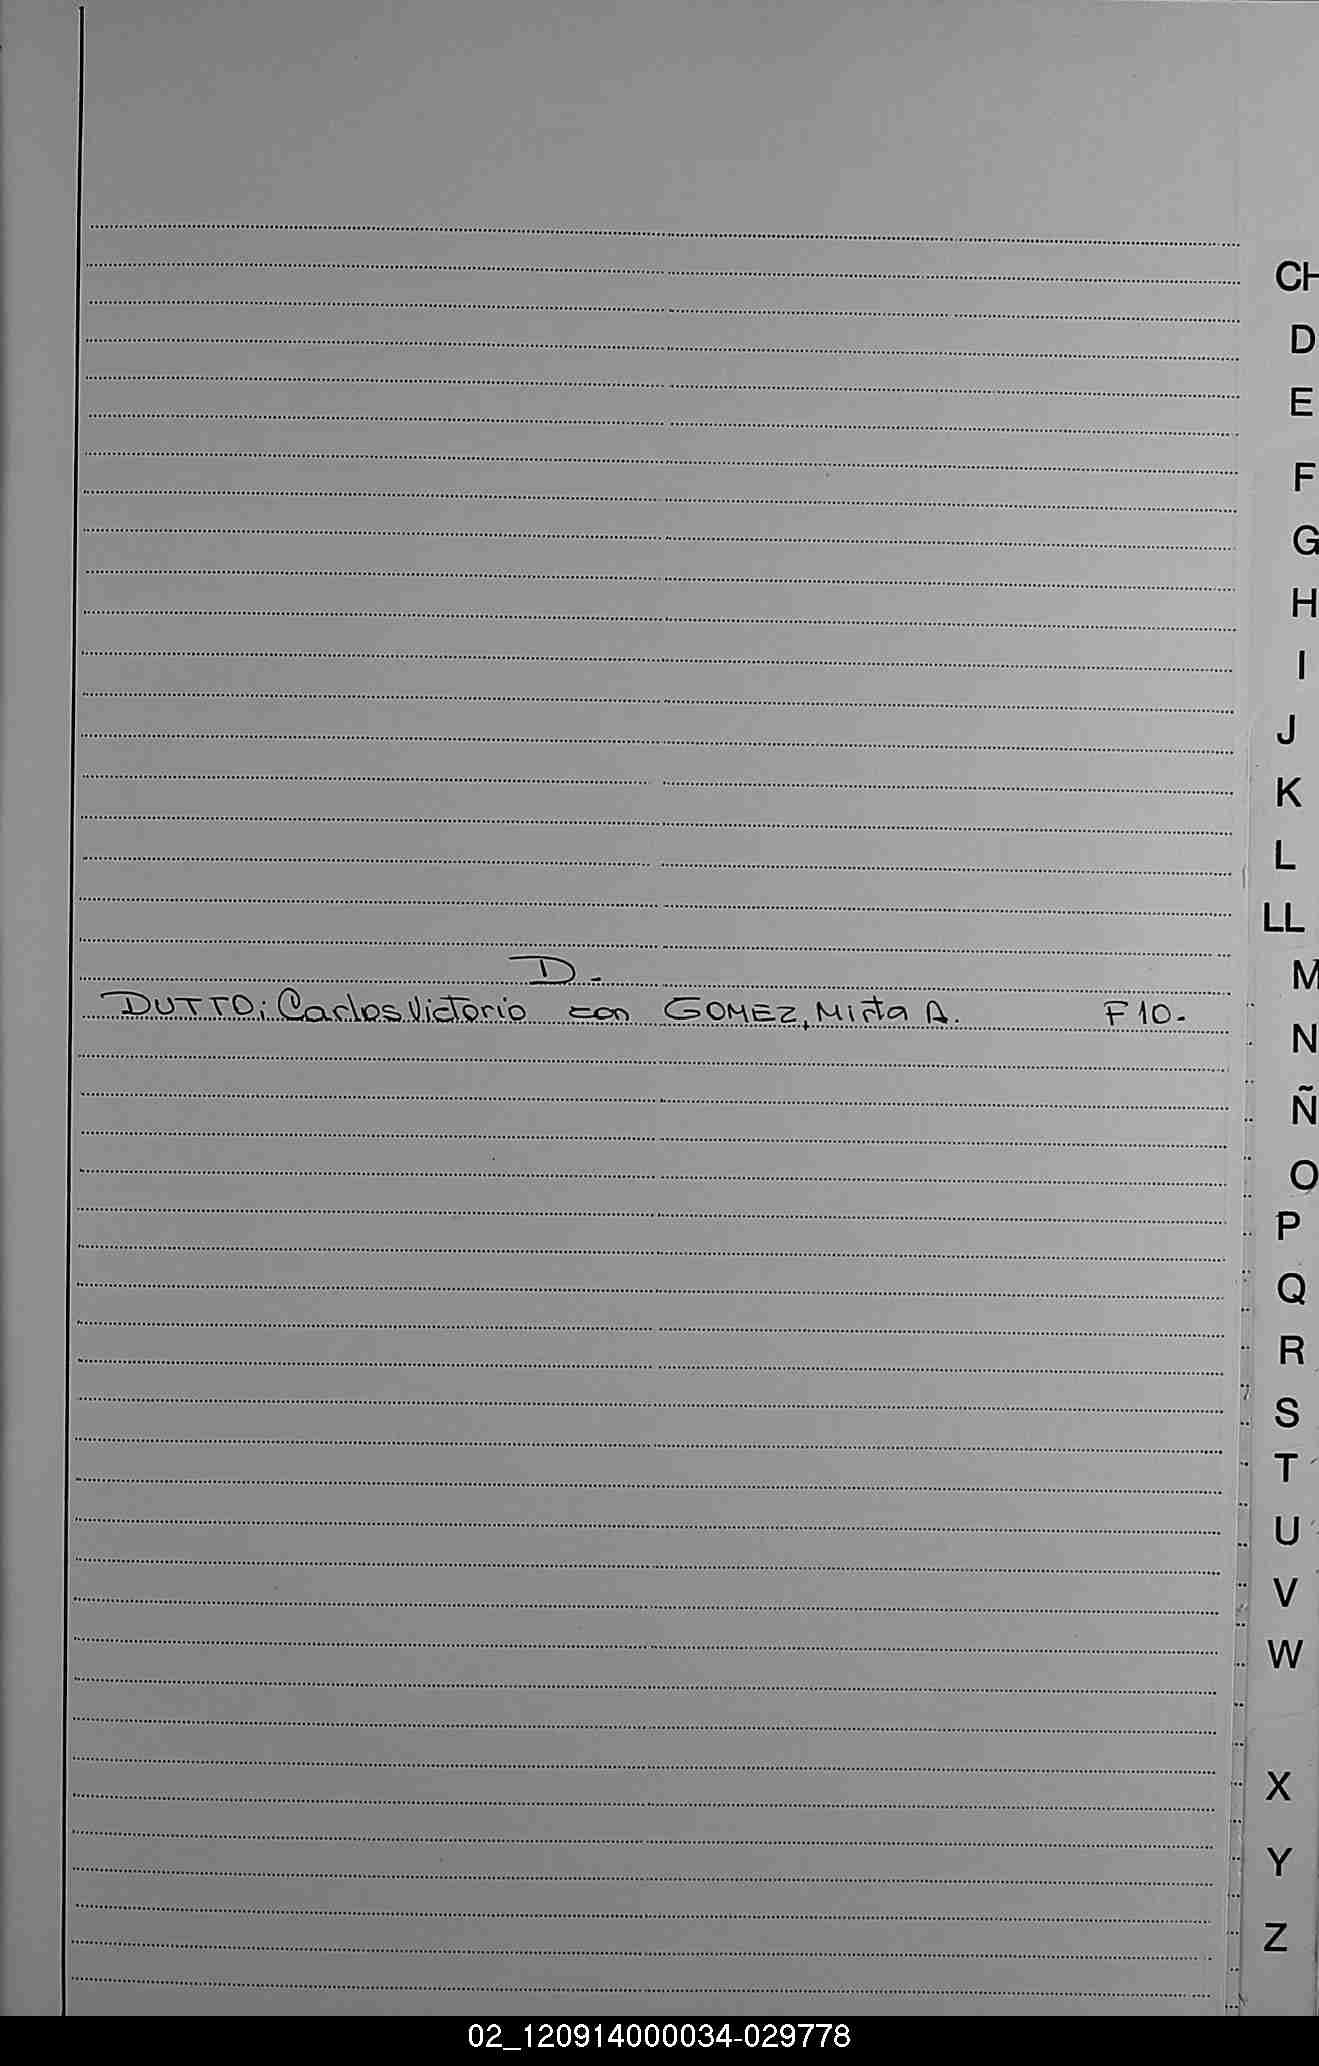 CH
D
E
F
G
H
I
J
K
L
LL
M
N
Ñ
O
P
Q
R
S
T
U
V
W
X
Y
Z
D.
DUTTO; Carlos Victorio con GOMEZ, Mirta A. F 10.
02_120914000034-029778